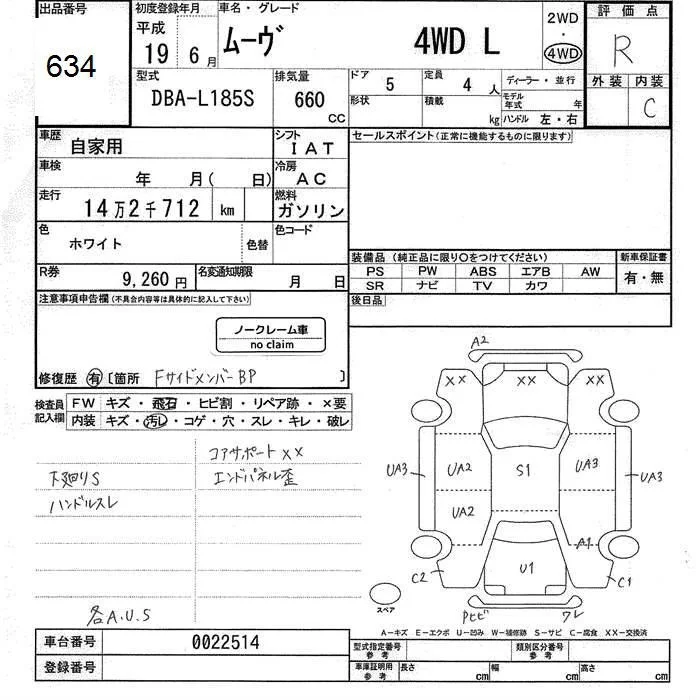 出品番号
634
初度登録年月
平成
19年 6月
車名・グレード
ムーヴ 4WD L
2WD
・
4WD
評価点
R
型式
DBA-L185S
排気量
660 CC
ドア 5
定員 4 人
ディーラー・並行
形状
積載 kg
モデル年式 年
ハンドル 左・右
外装 内装
C
車歴
自家用
シフト
IAT
車検
年 月( 日)
冷房
AC
走行
14万2千712 km
燃料
ガソリン
色
ホワイト
色替
色コード
R券
9,260円
名変通知期限
月 日
セールスポイント(正常に機能するものに限ります)
装備品(純正品に限り○をつけてください)
新車保証書
PS PW ABS エアB AW
SR ナビ TV カワ
有・無
後日品
注意事項申告欄(不具合内容等は具体的に記入して下さい)
ノークレーム車
no claim
修復歴 有 〔箇所 FサイドメンバーBP 〕
検査員記入欄
FW キズ・飛石・ヒビ割・リペア跡・×要
内装 キズ・汚レ・コゲ・穴・スレ・キレ・破レ
コアサポートXX
下廻りS
エンドパネル歪
ハンドルスレ
各A.U.S
A2
XX XX XX
UA3 UA2 S1 UA3 UA3
UA2
A1
C2 U1 C1
スペア
Pヒビ ワレ
A−キズ E−エクボ U−凹み W−補修跡 S−サビ C−腐食 XX−交換済
車台番号 0022514
登録番号
型式指定番号
参考
類別区分番号
参考
車庫証明用
参考
長さ cm 幅 cm 高さ cm